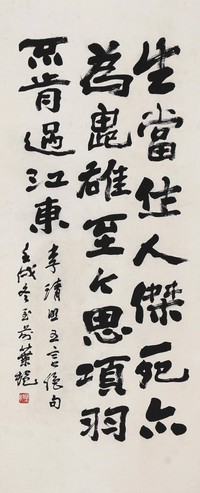 生當作人傑死亦
為鬼雄至今思項羽
不肯過江東
李清照五言絕句
壬戌冬至前